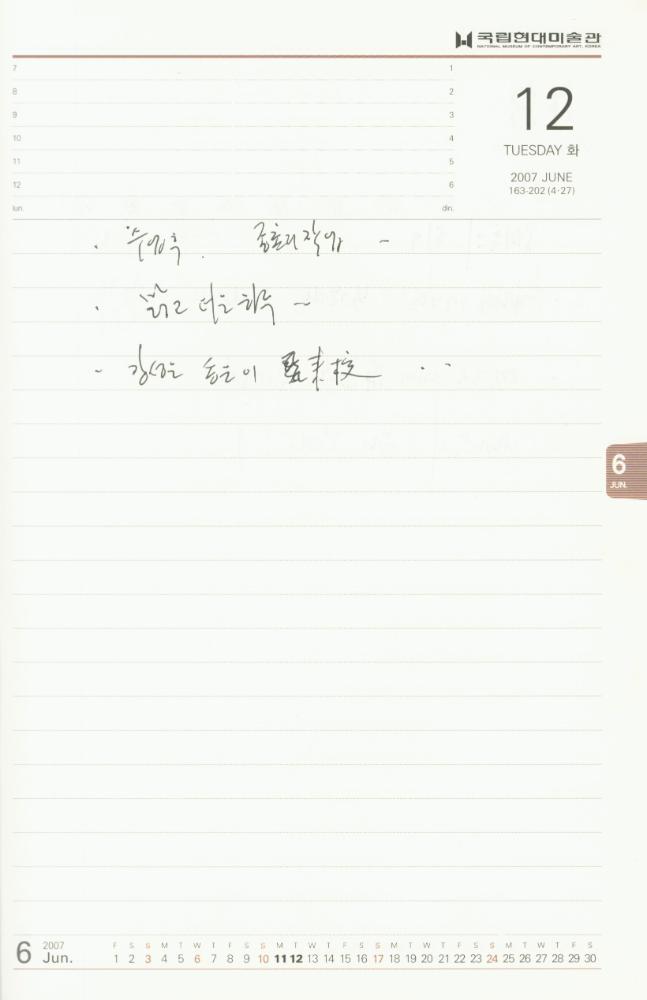 국립현대미술관
NATIONAL MUSEUM OF CONTEMPORARY ART, KOREA
7 1
8 2
9 3
10 4
11 5
12 6
lun. din.
12
TUESDAY 화
2007 JUNE
163-202 (4·27)
· 수업후 . –
· 맑고 더운 하루 ~
- 이 来校 . . .
6
JUN.
6 2007 Jun.
F S S M T W T F S S M T W T F S S M T W T F S S M T W T F S
1 2 3 4 5 6 7 8 9 10 11 12 13 14 15 16 17 18 19 20 21 22 23 24 25 26 27 28 29 30